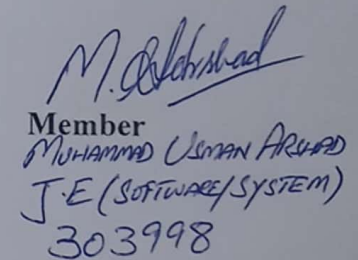 M. Arshad
Member
MUHAMMAD USMAN ARSHAD
J.E (SOFTWARE/SYSTEM)
303998